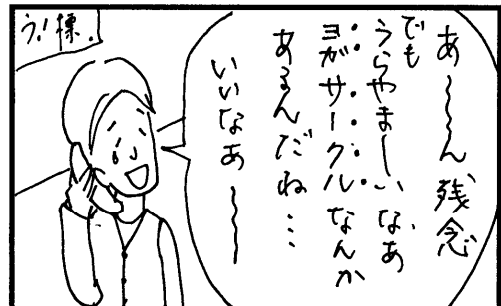 あ〜〜ん、残念
でも
うらやましーいなあ
ヨガサークルなんか
あるんだね…
いいなあ〜〜